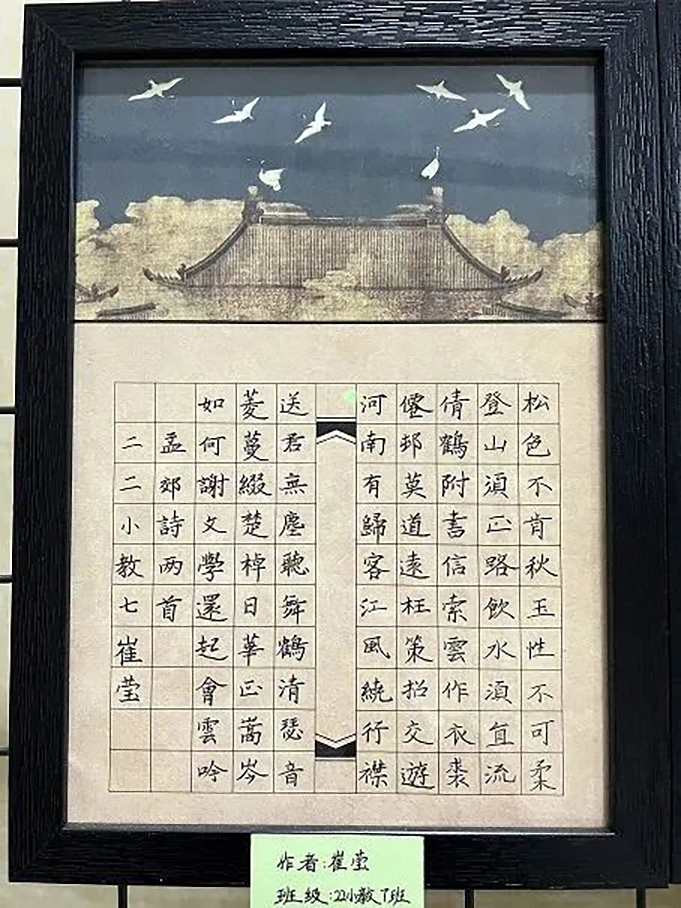 松色不肯秋玉性不可柔
登山須正路飲水須直流
倩鶴附書信索雲作衣裘
僊邨莫道遠枉策招交遊
河南有歸客江風繞行襟
送君無塵聽舞鶴清瑟音
菱蔓綴楚棹日華正嵩岑
如何謝文學還起會雲吟
孟郊詩两首
二二小教七崔莹
作者:崔莹
班级:22小教7班